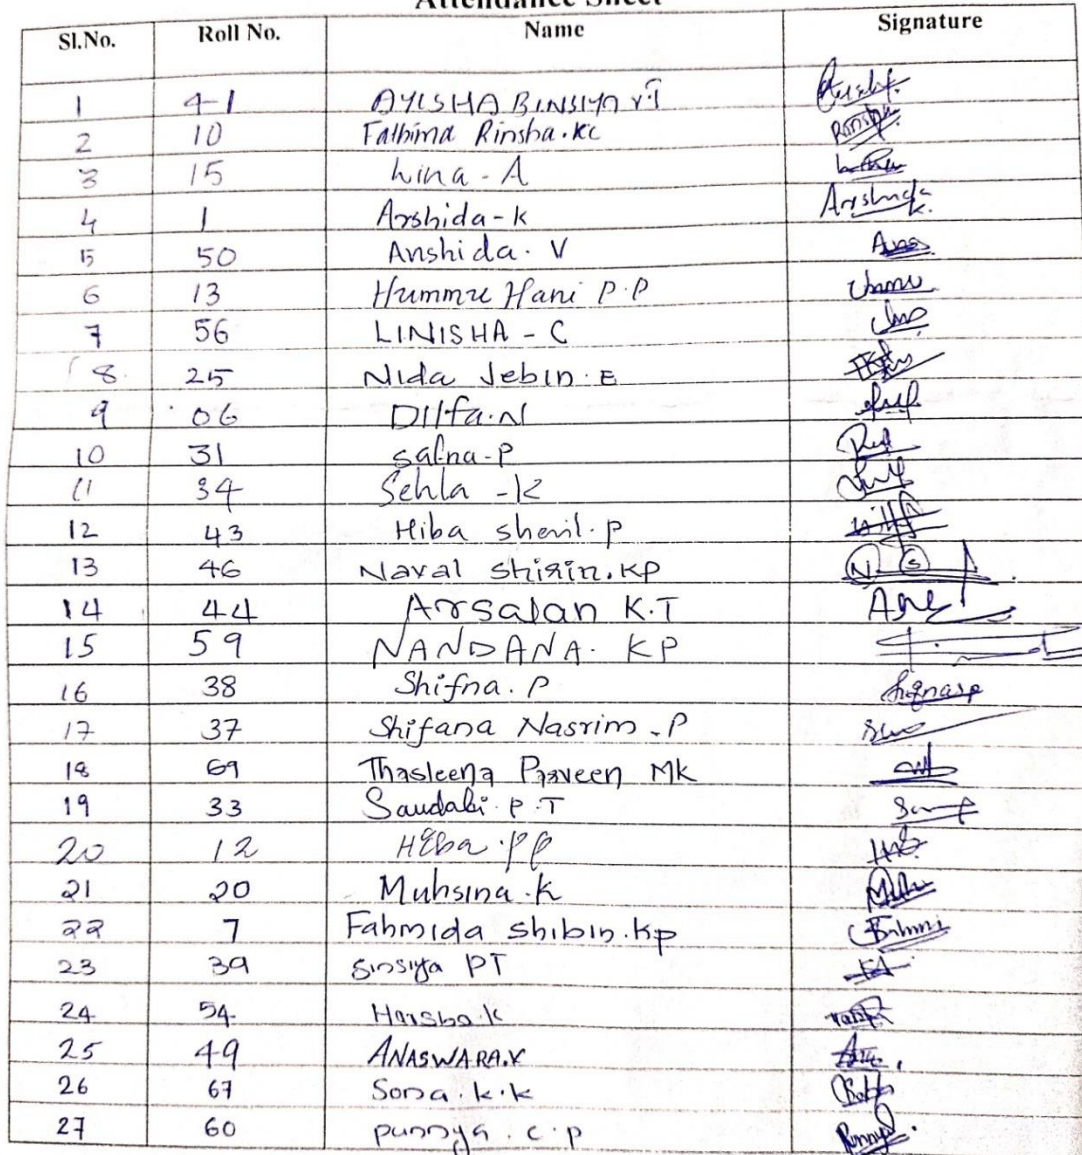 Attendance Sheet
Sl.No. Roll No. Name Signature
1 41 AYISHA BINSIYA V.T
2 10 Fathima Rinsha.KC
3 15 Lina-A
4 1 Arshida-k Arshida k.
5 50 Anshida. V
6 13 Hummu Hani P.P
7 56 LINISHA - C
8. 25 Nida Jebin.E
9 06 Dilfa.N
10 31 Safna-P
11 34 Sehla -K
12 43 Hiba sheril.P
13 46 Naval shirin.KP N S
14 44 Arsalan K.T
15 59 NANDANA. KP
16 38 Shifna. P Shifnasp
17 37 Shifana Nasrim.P
18 69 Thasleena Parveen MK
19 33 Saudabi.P.T
20 12 Hiba.PP
21 20 Muhsina.K
22 7 Fahmida shibin.kp
23 39 Sinsiya PT
24 54. Harsha.k
25 49 ANASWARA.V
26 67 Sona.k.k
27 60 punnya.c.p Punnya.